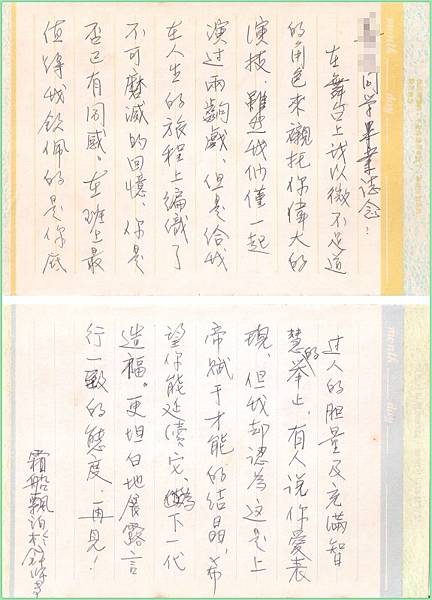 同学畢業誌念!
在舞台上我以微不足道
的角色來襯托你偉大的
演技,雖然我們僅一起
演过兩齣戲、但是給我
在人生的旅程上編織了
不可磨滅的回憶、你是
否已有同感。在班上最
值得我欽佩的是你底
过人的胆量及充滿智
慧的舉止,有人說你愛表
現、但我却認為這是上
帝賦于才能的結晶,希
望你能延續它、為下一代
造福。更坦白地展露言
行一致的態度、再見!
霜船飄泊於